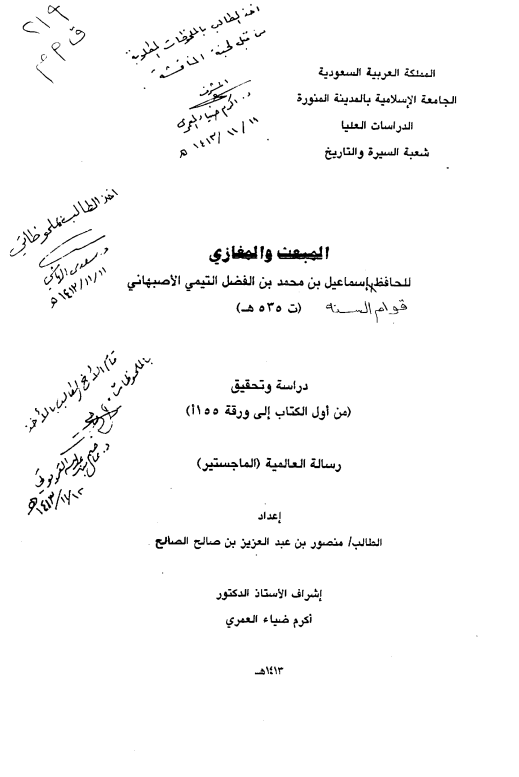 ٢١٩
ق ٣ م
اخذ الطالب بالملحوظات المطلوبة
من قبل لجنة المناقشة
المشرف
د. اكرم ضياء العمري
١٤١٣/١١/١١ هـ
المملكة العربية السعودية
الجامعة الإسلامية بالمدينة المنورة
الدراسات العليا
شعبة السيرة والتاريخ
اخذ الطالب بملحوظاتي
١٤١٣/١١/١١ هـ
المبعث والمغازي
للحافظ إسماعيل بن محمد بن الفضل التيمي الأصبهاني
قوام السنه (ت ٥٣٥ هـ)
قام الأخ الطالب بالأخذ
بالملحوظات
دراسة وتحقيق
(من أول الكتاب إلى ورقة ١٥٥أ)
رسالة العالمية (الماجستير)
إعداد
الطالب/ منصور بن عبد العزيز بن صالح الصالح
إشراف الأستاذ الدكتور
أكرم ضياء العمري
١٤١٣هـ